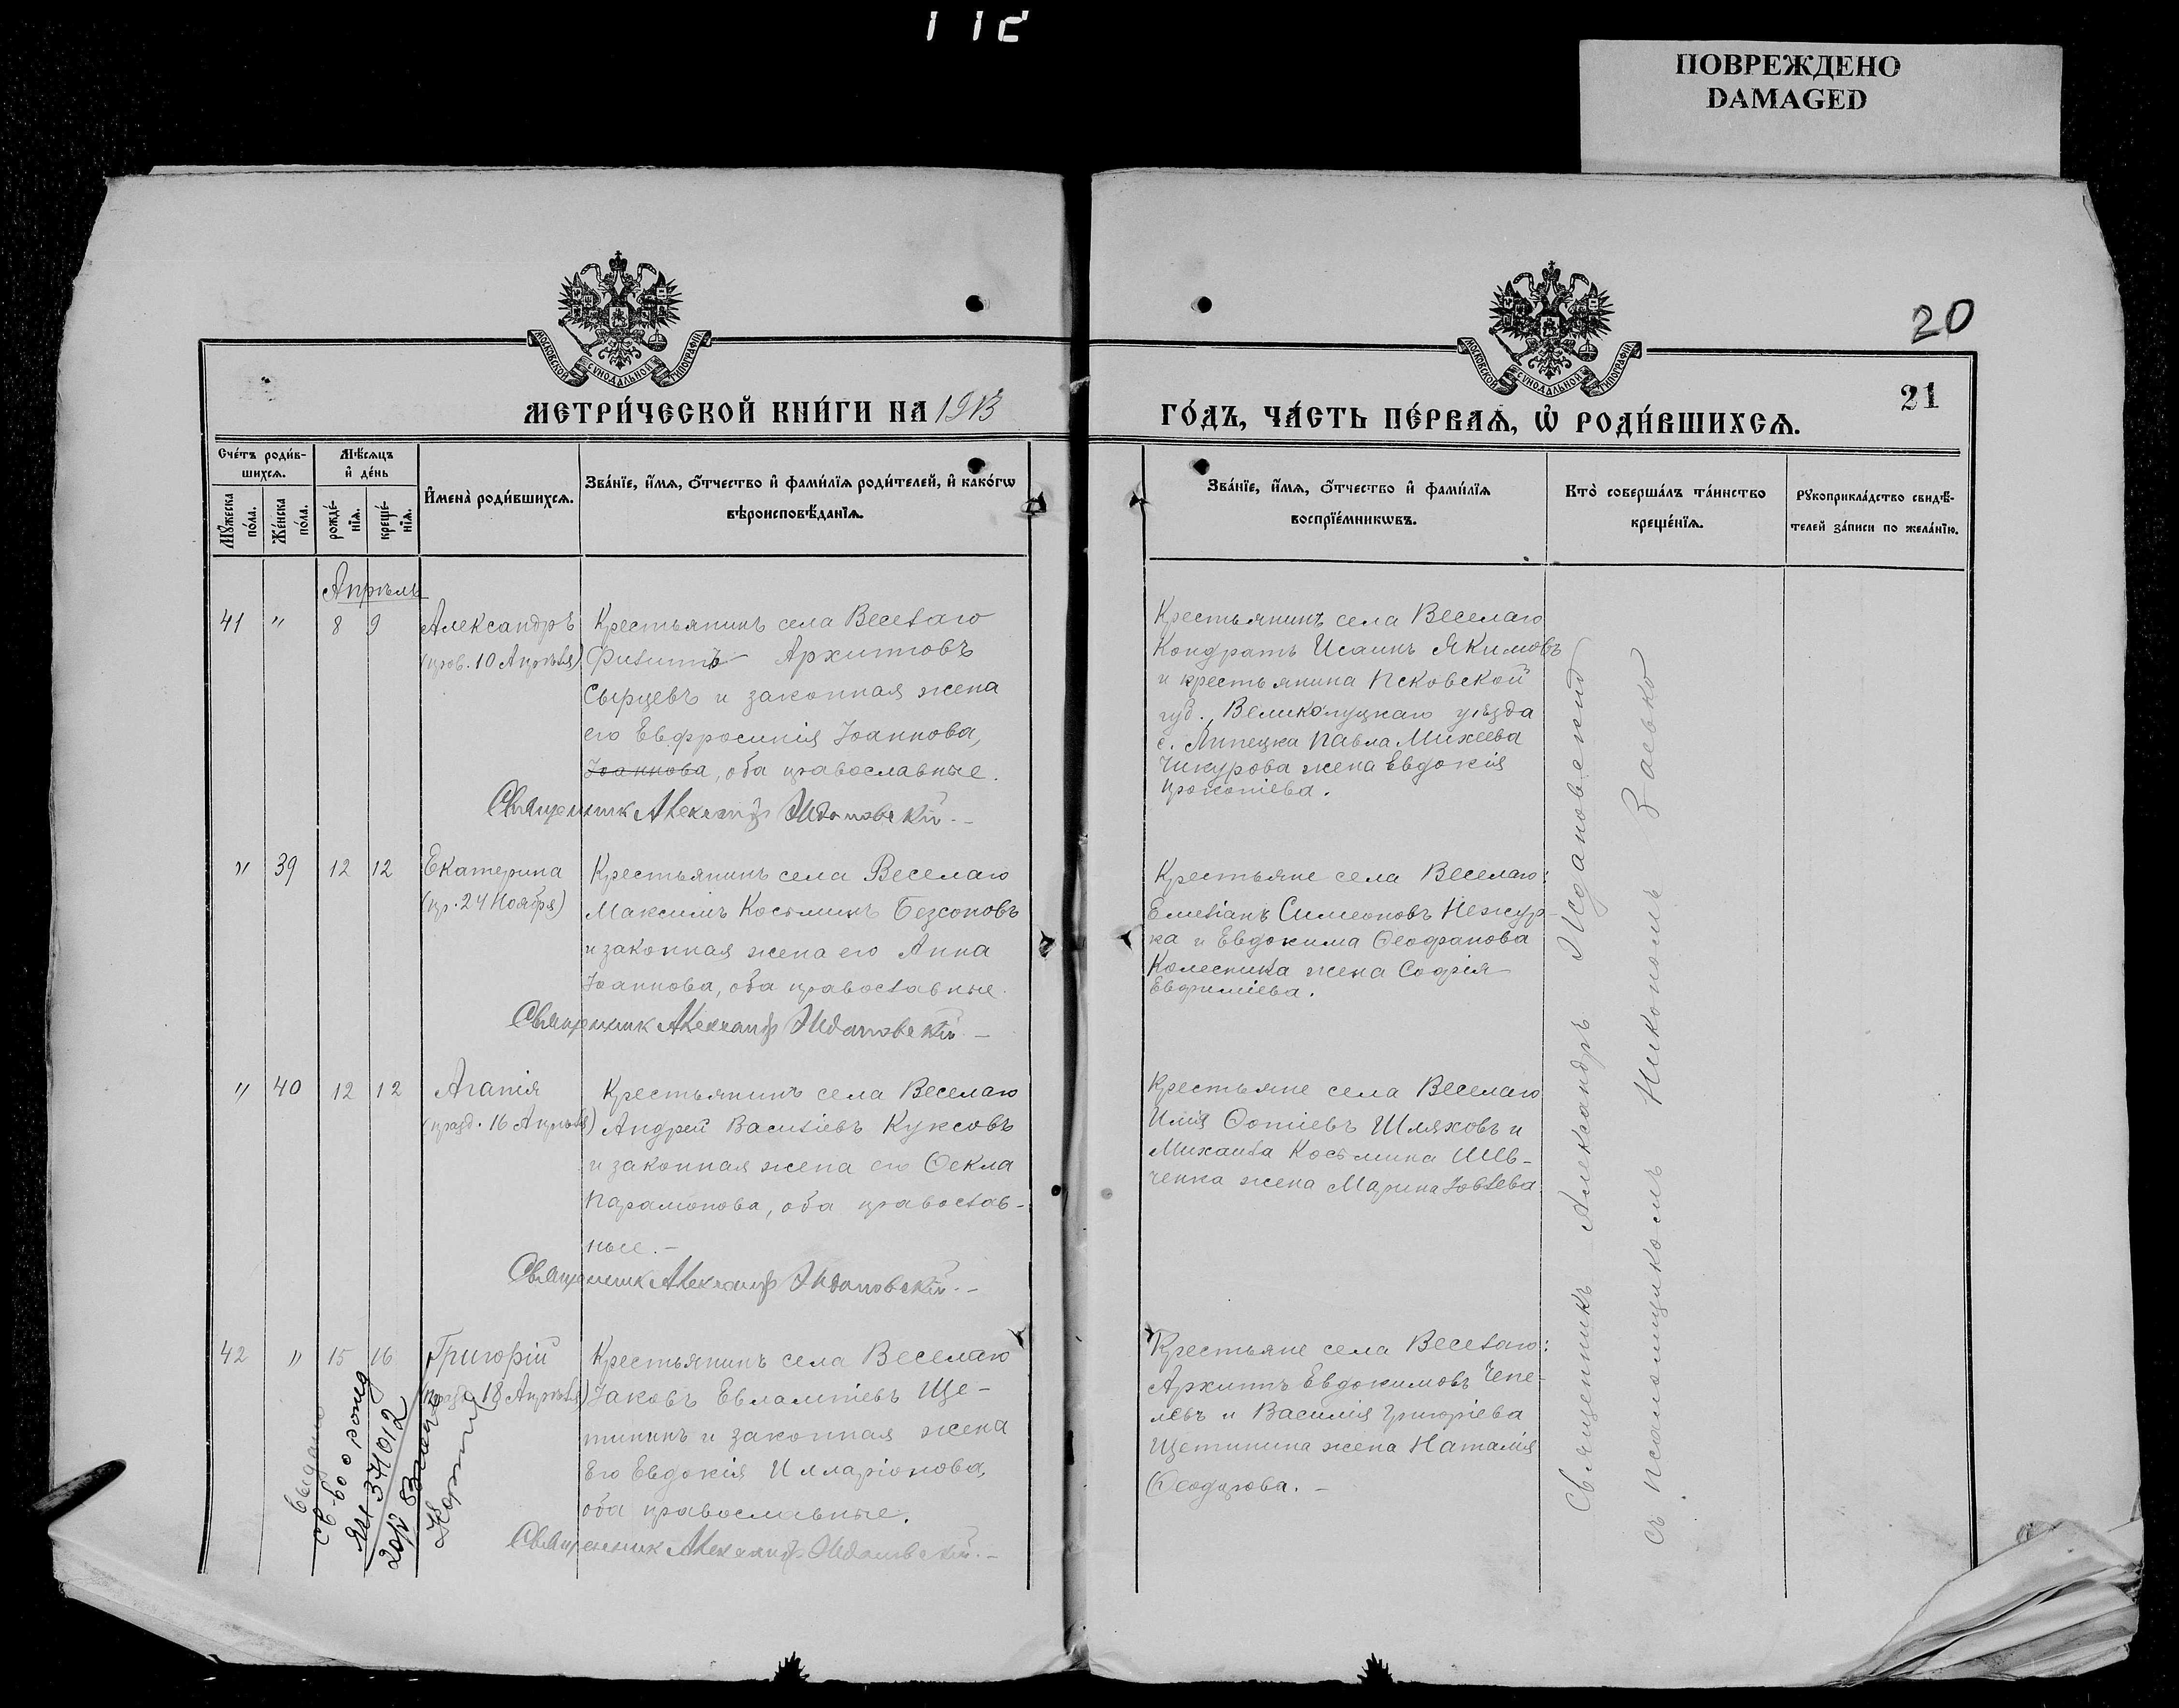 112
ПОВРЕЖДЕНО
DAMAGED
МОСКОВСКОЙ СУНОДАЛЬНОЙ ТИПОГРАФІИ
МОСКОВСКОЙ СУНОДАЛЬНОЙ ТИПОГРАФІИ
20
21
МЕТРИ́ЧЕСКОЙ КНИ́ГИ НА 1913
ГО́ДЪ, ЧА́СТЬ ПЕ́РВАѦ, Ѡ҆ РОДИ́ВШИХСѦ.
Сче́тъ роди́в-
шихсѧ.
Мѣ́сѧцъ
и҆ де́нь
Мꙋ́жеска
по́ла.
Же́нска
по́ла.
рожде́-
нїѧ.
креще́-
нїѧ.
И҆мена̀ роди́вшихсѧ.
Зва́нїе, и҆́мѧ, ѻ҆́тчество и҆ фами́лїѧ роди́телей, и҆ како́гѡ
вѣроисповѣ́данїѧ.
Зва́нїе, и҆́мѧ, ѻ҆́тчество и҆ фами́лїѧ
воспрїе́мникѡвъ.
Кто̀ соверша́лъ та́инство
креще́нїѧ.
Рꙋкоприкла́дство свидѣ́-
телей за́писи по жела́нїю.
Апрѣль
41 " 8 9 Александръ
(пров. 10 Апрѣля)
Крестьянинъ села Веселаго
Филиппъ Архиповъ
Сырцевъ и законная жена
его Евфросинія Іоаннова,
Іоаннова, оба православные.
Священник Александр Ждановскій. –
Крестьянинъ села Веселаго
Кондратъ Исаинъ Якимовъ
и крестьянина Псковской
губ., Великолуцкаго уѣзда
с. Липецка Павла Михеева
Чикурова жена Евдокія
Прокопіева.
" 39 12 12 Екатерина
(пр. 24 Ноября)
Крестьянинъ села Веселаго
Максимъ Косьминъ Безсоновъ
и законная жена его Анна
Іоаннова, оба православные.
Священник Александр Ждановскій. –
Крестьяне села Веселаго:
Емеліанъ Симеоновъ Нежур-
ка и Евдокима Ѳеофанова
Колесника жена Софія
Евфиміева.
" 40 12 12 Агапія
(празд. 16 Апрѣля)
Крестьянинъ села Веселаго
Андрей Василіевъ Куксовъ
и законная жена его Ѳекла
Парамонова, оба православ-
ные. –
Священник Александр Ждановскій. –
Крестьяне села Веселаго
Илія Ѳотіевъ Шляховъ и
Михаила Косьмина Шев-
ченка жена Марина Іовлева
42 " 15 16 Григорій
(празд. 18 Апрѣля)
Крестьянинъ села Веселаго
Іаковъ Евлампіевъ Ще-
тининъ и законная жена
Его Евдокія Илларіонова,
оба православные.
Священник Александр Ждановскій. –
Крестьяне села Веселаго:
Архипъ Евдокимовъ Чепе-
левъ и Василія Григоріева
Щетинина жена Наталія
Ѳеодорова. –
Выдано
св-во о рожд
374012
Священникъ Александръ Ждановскій
съ псаломщикомъ Никономъ Заевко